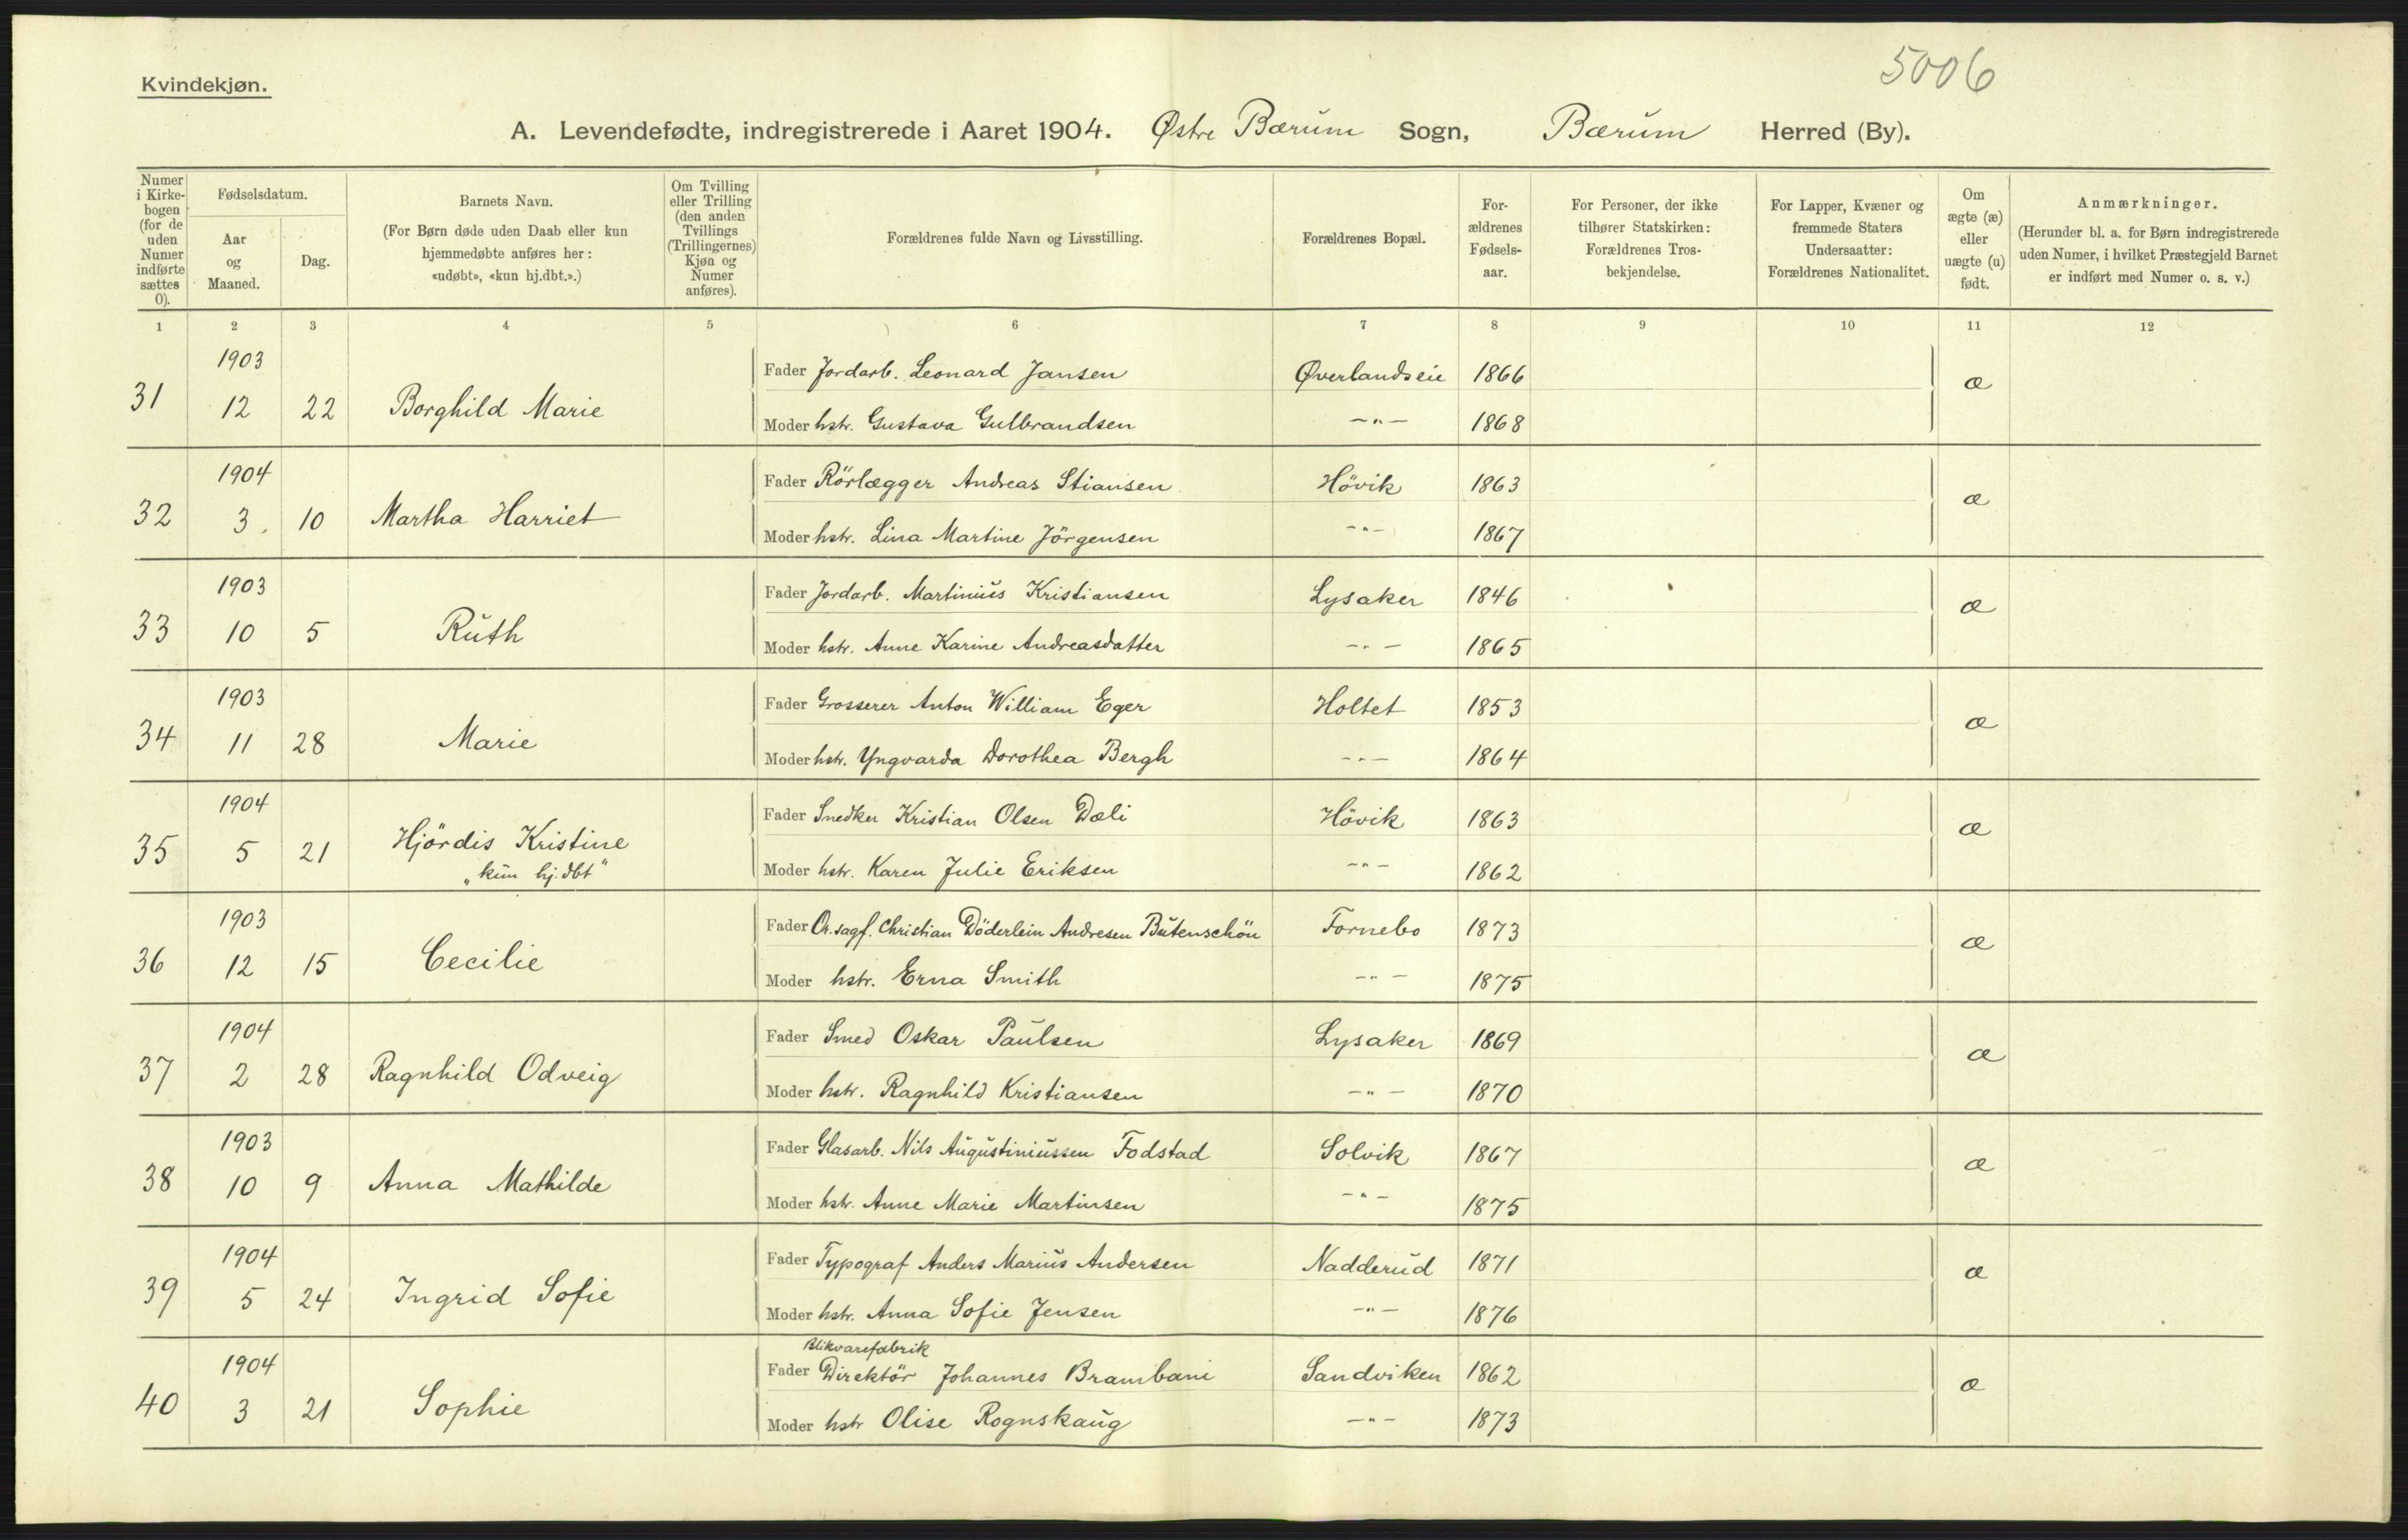 5006
Kvindekjøn.
A. Levendefødte, indregistrerede i Aaret 1904. Østre Bærum Sogn, Bærum Herred (By).
Numer i Kirkebogen (for de uden Numer indførte sættes 0).
Fødselsdatum.
Aar og Maaned.
Dag.
Barnets Navn.
(For Børn døde uden Daab eller kun hjemmedøbte anføres her: «udøbt», «kun hj.dbt.».)
Om Tvilling eller Trilling (den anden Tvillings (Trillingernes) Kjøn og Numer anføres).
Forældrenes fulde Navn og Livsstilling.
Forældrenes Bopæl.
For-ældrenes Fødsels-aar.
For Personer, der ikke tilhører Statskirken: Forældrenes Tros-bekjendelse.
For Lapper, Kvæner og fremmede Staters Undersaatter: Forældrenes Nationalitet.
Om ægte (æ) eller uægte (u) født.
Anmærkninger.
(Herunder bl. a. for Børn indregistrerede uden Numer, i hvilket Præstegjeld Barnet er indført med Numer o. s. v.)
1 2 3 4 5 6 7 8 9 10 11 12
1903
Fader Jordarb. Leonard Jansen Øverlandseie 1866
31 12 22 Borghild Marie æ
Moder hstr. Gustava Gulbrandsen -"- 1868
1904
Fader Rörlægger Andreas Stiansen Hövik 1863
32 3. 10 Martha Harriet æ
Moder hstr. Lina Martine Jörgensen -"- 1867
1903
Fader Jordarb. Martinius Kristiansen Lysaker 1846
33 10 5 Ruth æ
Moder hstr. Anne Karine Andreasdatter -"- 1865
1903
Fader Grosserer Anton William Eger Holtet 1853
34 11 28 Marie æ
Moder hstr. Yngvarda Dorothea Bergh -"- 1864
1904
Fader Snedker Kristian Olsen Dæli Hövik 1863
35 5 21 Hjördis Kristine æ
„kun hj.dbt"
Moder hstr. Karen Julie Eriksen -"- 1862
1903
Fader O.r.sagf. Christian Döderlein Andresen Butenschön Fornebo 1873
36 12 15 Cecilie æ
Moder hstr. Erna Smith -"- 1875
1904
Fader Smed Oskar Paulsen Lysaker 1869
37 2 28 Ragnhild Odveig æ
Moder hstr. Ragnhild Kristiansen -"- 1870
1903
Fader Glasarb. Nils Augustiniussen Fodstad Solvik 1867
38 10 9 Anna Mathilde æ
Moder hstr. Anne Marie Martinsen -"- 1875
1904
Fader Typograf Anders Marius Andersen Nadderud 1871
39 5 24 Ingrid Sofie æ
Moder hstr. Anna Sofie Jensen -"- 1876
Blikvarefabrik
1904
Fader Direktör Johannes Brambani Sandviken 1862
40 3 21 Sophie æ
Moder hstr Olise Rognskaug -"- 1873